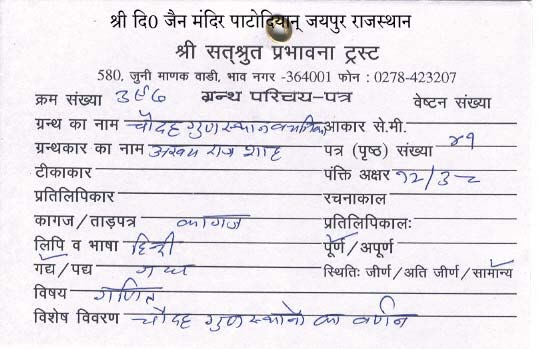 श्री दि0 जैन मंदिर पाटोदियान् जयपुर राजस्थान
श्री सत्श्रुत प्रभावना ट्रस्ट
580, जुनी माणक वाडी, भाव नगर -364001 फोन : 0278-423207
क्रम संख्या ३९७ ग्रन्थ परिचय-पत्र वेष्टन संख्या
ग्रन्थ का नाम चौदह गुणस्थान आकार से.मी.
ग्रन्थकार का नाम अखय राज शाह पत्र (पृष्ठ) संख्या ४१
टीकाकार पंक्ति अक्षर १२/३८
प्रतिलिपिकार रचनाकाल
कागज/ताड़पत्र कागज प्रतिलिपिकालः
लिपि व भाषा हिन्दी पूर्ण/अपूर्ण
गद्य/पद्य गद्य स्थितिः जीर्ण/अति जीर्ण/सामान्य
विषय गणित
विशेष विवरण चौदह गुण स्थानो का वर्णन